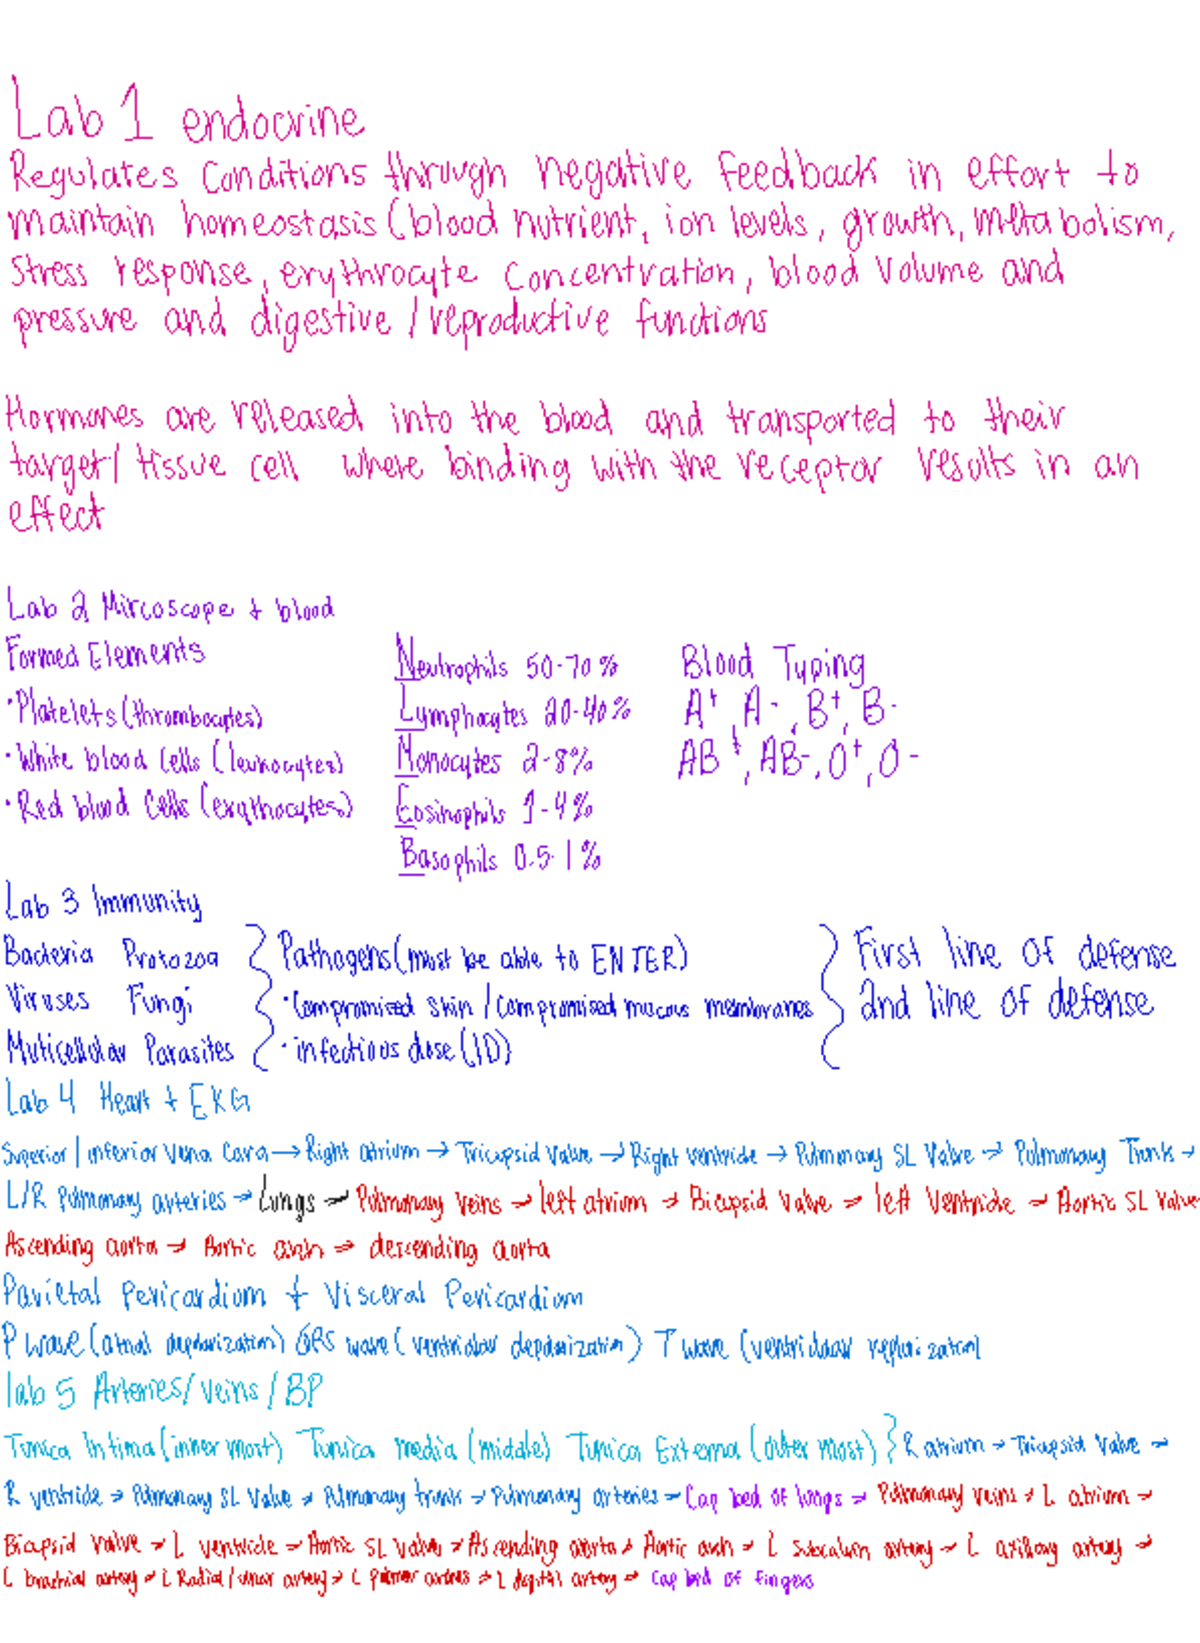 Lab 1 endocrine
Regulates Conditions through negative feedback in effort to
maintain homeostasis (blood nutrient, ion levels, growth, metabolism,
stress response, erythrocyte concentration, blood volume and
pressure and digestive / reproductive functions
Hormones are released into the blood and transported to their
target/ tissue cell where binding with the receptor results in an
effect
Lab 2 Mircoscope + blood
Formed Elements
Neutrophils 50-70% Blood Typing
• Platelets (thrombocytes) Lymphocytes 20-40% A+, A-, B+, B-
• White blood cells (leukocytes) Monocytes 2-8% AB+, AB-, O+, O-
• Red blood cells (erythocytes) Eosinophils 1-4%
Basophils 0.5-1%
Lab 3 Immunity
Bacteria Protozoa } Pathogens (must be able to ENTER) } First line of defense
Viruses Fungi • Compromised skin / compromised mucous membranes 2nd line of defense
Muticellular Parasites • infectious dose (ID)
Lab 4 Heart + EKG
Superior | inferior vena cava → Right atrium → Tricupsid valve → Right ventricle → Pulmonary SL Valve → Pulmonary Trunk →
L/R Pulmonary arteries → Lungs → Pulmonary veins → left atrium → Bicupsid valve → left ventricle → Aortic SL valve
Ascending aorta → Aortic arch → descending aorta
Parietal Pericardium + Visceral Pericardium
P wave (atrial depolarization) QRS wave (ventricular depolarization) T wave (ventricular repolarization)
lab 5 Arteries/veins/BP
Tunica Intima (inner most) Tunica media (middle) Tunica Externa (outer most) } R atrium → Tricupsid valve →
R ventricle → Pulmonary SL valve → Pulmonary trunk → Pulmonary arteries → Cap bed of lungs → Pulmonary veins → L atrium →
Bicupsid valve → L ventricle → Aortic SL valve → Ascending aorta → Aortic arch → L artery → L axillary artery →
L brachial artery → L Radial/ulnar artery → L palmar arches → L digital artery → Cap bed of fingers